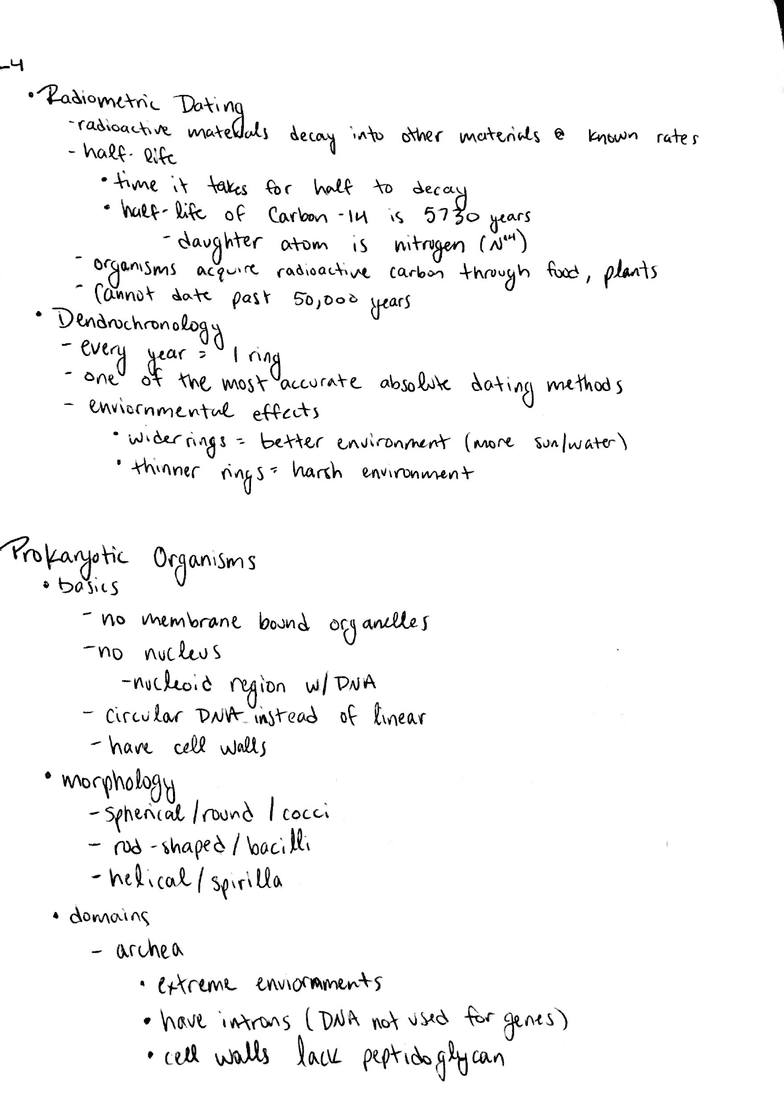 -4
• Radiometric Dating
-radioactive materials decay into other materials @ known rates
- half-life
• time it takes for half to decay
• half-life of Carbon-14 is 5730 years
- daughter atom is nitrogen (N¹⁴)
- organisms acquire radioactive carbon through food, plants
- Cannot date past 50,000 years
• Dendrochronology
- every year = 1 ring
- one of the most accurate absolute dating methods
- enviornmental effects
• wider rings = better environment (more sun/water)
• thinner rings = harsh environment
Prokaryotic Organisms
• basics
- no membrane bound organelles
-no nucleus
-nucleoid region w/ DNA
- circular DNA instead of linear
- have cell walls
• morphology
- spherical/round/cocci
- rod-shaped/bacilli
- helical/spirilla
• domains
- archea
• extreme enviornments
• have introns (DNA not used for genes)
• cell walls lack peptidoglycan